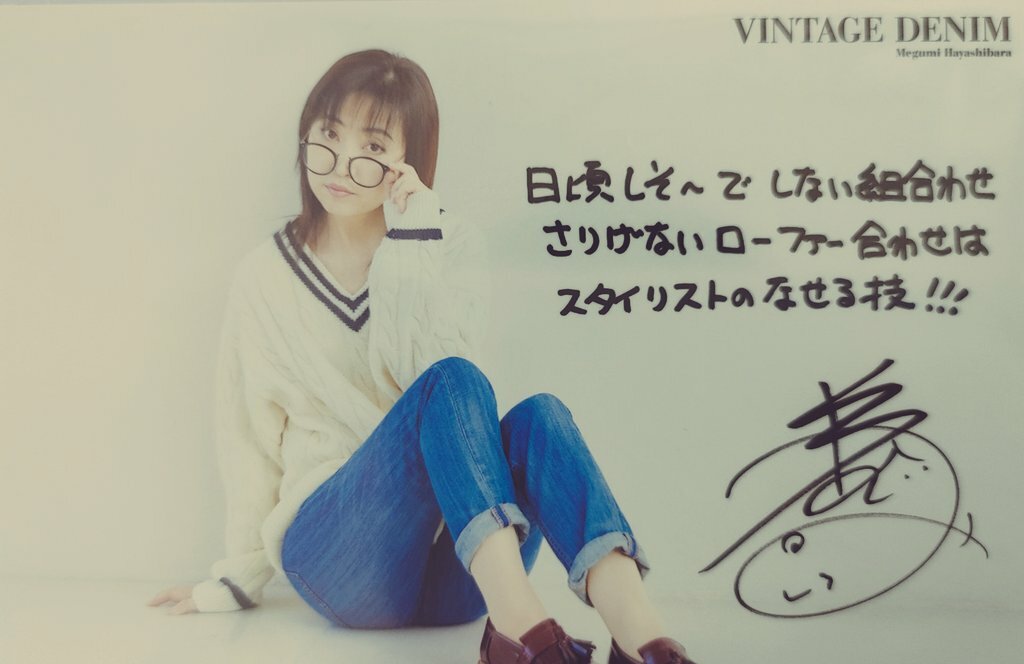 VINTAGE DENIM
Megumi Hayashibara
日頃しそ〜でしない組合わせ
さりげないローファー合わせは
スタイリストのなせる技!!!